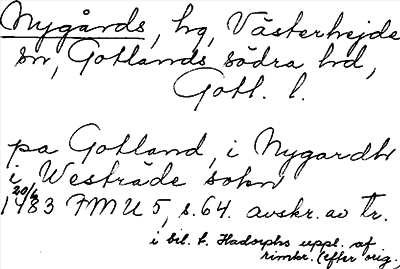 Nygårds, hg, Västerhejde
sn, Gotlands södra hd,
Gotl. l.
pa Gotland, i Nygardh
i Westräde sokn
20/6
1483 FMU 5, s. 64. avskr. av tr.
i bil. t. Hadorphs uppl. af
rimkr. (efter orig.)